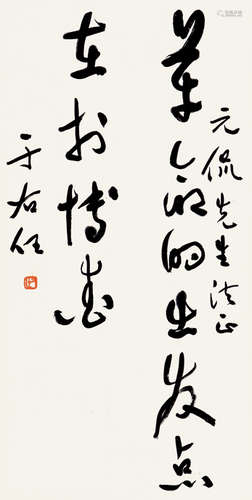 元侃先生法正
革命的出发点
在於博愛
于右任